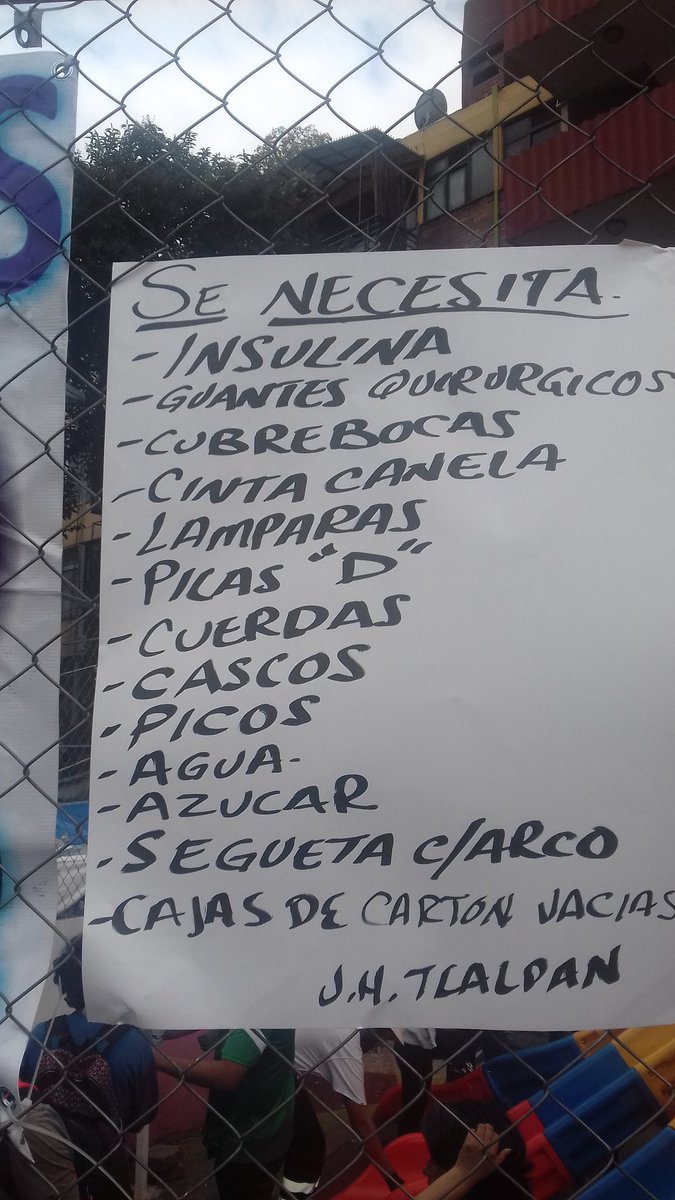 S
SE NECESITA.
-INSULINA
-GUANTES QUIRURGICOS
-CUBREBOCAS
-CINTA CANELA
-LAMPARAS
-PICAS "D"
-CUERDAS
-CASCOS
-PICOS
-AGUA-
-AZUCAR
-SEGUETA C/ARCO
-CAJAS DE CARTON VACIAS
U.H. TLALPAN